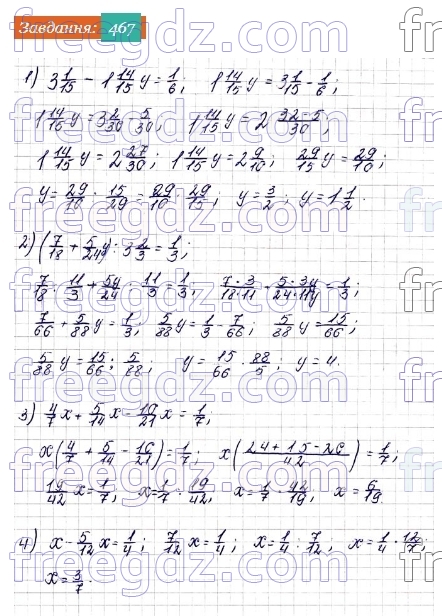 Завдання: 467
1) 3 1/15 - 1 14/15 y = 1/6; 1 14/15 y = 3 1/15 - 1/6;
1 14/15 y = 3 2/30 - 5/30; 1 14/15 y = 2 32-5/30;
1 14/15 y = 2 27/30; 1 14/15 y = 2 9/10; 29/15 y = 29/10;
y = 29/10 : 15/29 = 29/10 · 29/15; y = 3/2; y = 1 1/2.
2) (7/18 + 5/24 y) : 3 2/3 = 1/3;
7/18 : 11/3 + 5y/24 : 11/3 = 1/3; 7·3/18·11 + 5·3y/24·11 = 1/3;
7/66 + 5/88 y = 1/3; 5/88 y = 1/3 - 7/66; 5/88 y = 15/66;
5/88 y = 15/66 : 5/88; y = 15/66 · 88/5; y = 4.
3) 4/7 x + 5/14 x - 10/21 x = 1/7;
x(4/7 + 5/14 - 10/21) = 1/7; x(24+15-20/42) = 1/7;
19/42 x = 1/7; x = 1/7 : 19/42; x = 1/7 · 42/19; x = 6/19.
4) x - 5/12 x = 1/4; 7/12 x = 1/4; x = 1/4 : 7/12; x = 1/4 · 12/7;
x = 3/7.